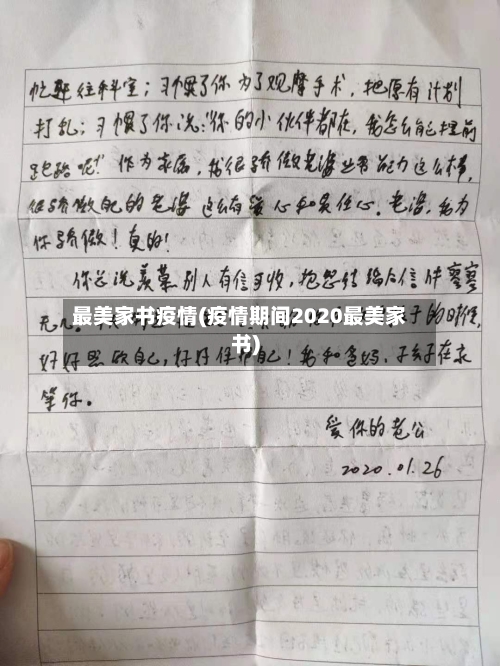 忙赶往科室；习惯了你为了观摩手术，把原有计划
打乱；习惯了你说：“你的小伙伴都在，我怎么自己提前
跑路呢！”作为家属，我很骄傲老婆业务能力这么棒，
很骄傲自己的老婆这么有爱心和责任心。老婆，我为
你骄傲！真的！
你总说羡慕别人有信可收，抱怨结婚后信件寥寥
无几。
最美家书疫情(疫情期间2020最美家
书)
子的时候，
好好照顾自己，好好保护自己！我和爸妈、孩子在家
等你。
爱你的老公
2020.01.26